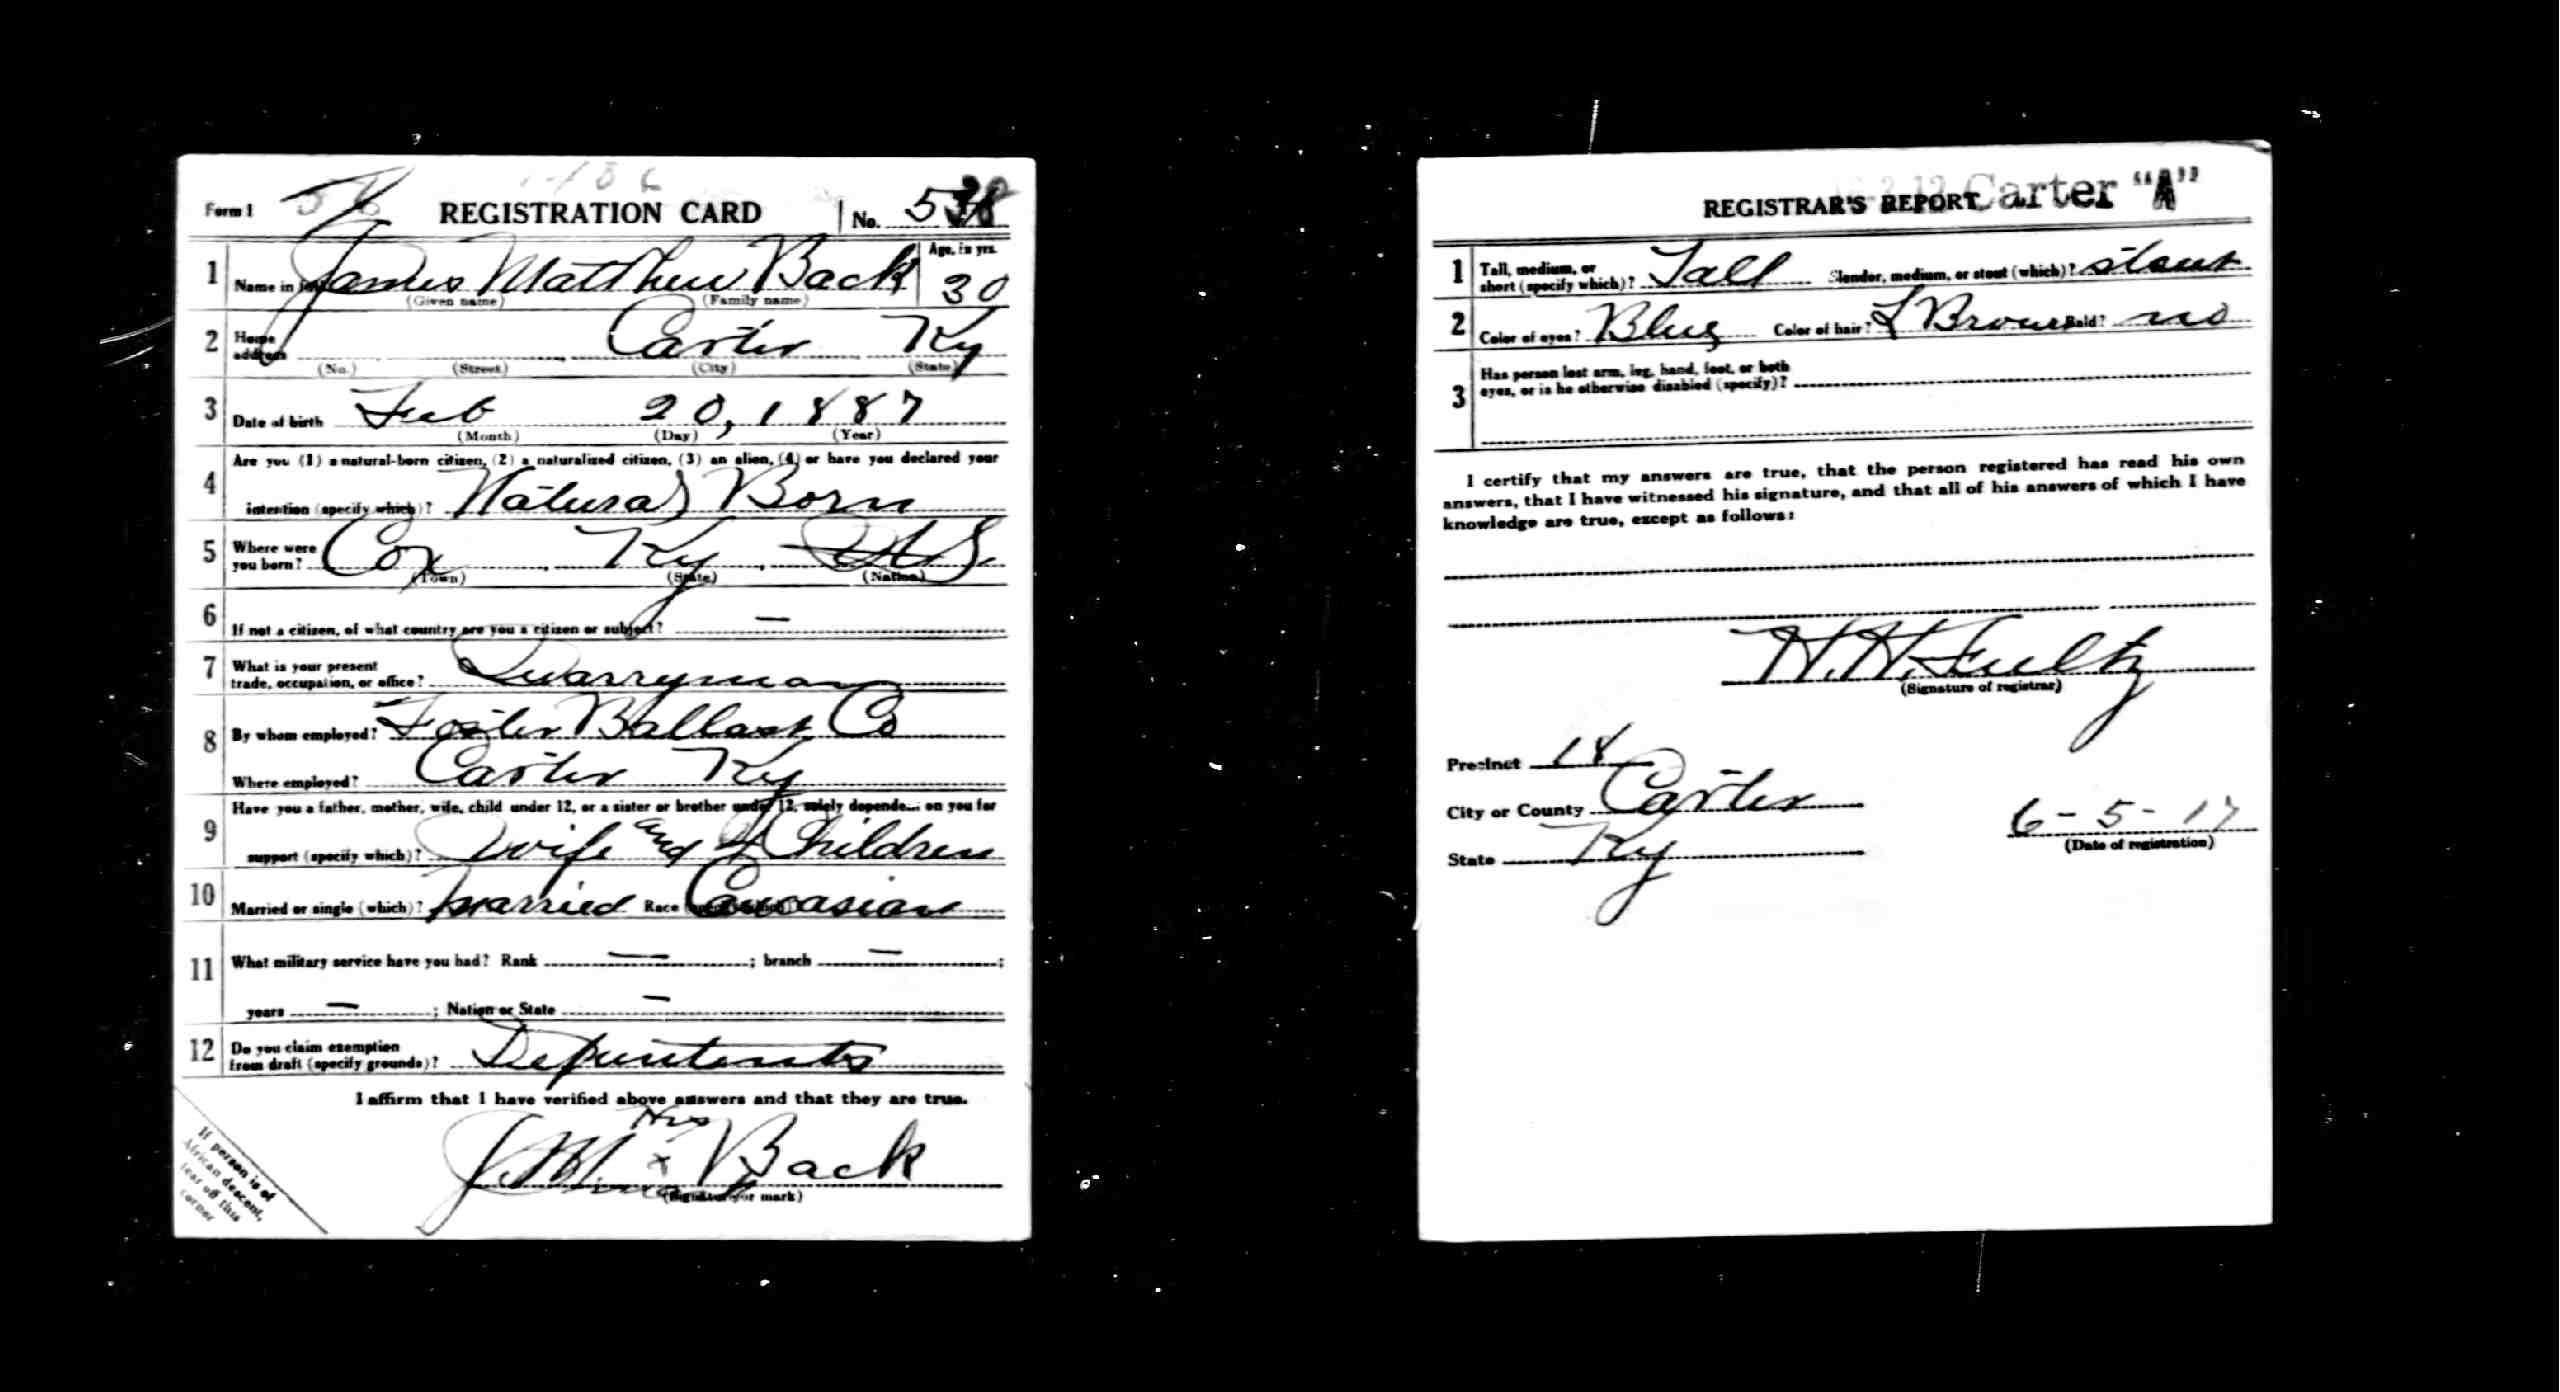 Form 1 REGISTRATION CARD No.
1 Name in full James Matthew Back Age, in yrs. 30
(Given name) (Family name)
2 Home address Carter Ky
(No.) (Street) (City) (State)
3 Date of birth Feb 20, 1887
(Month) (Day) (Year)
4 Are you (1) a natural-born citizen, (2) a naturalized citizen, (3) an alien, (4) or have you declared your
intention (specify which)? Natural Born
5 Where were you born? Cox, Ky, U.S.
(Town) (State) (Nation)
6 If not a citizen, of what country are you a citizen or subject? —
7 What is your present
trade, occupation, or office? Quarryman
8 By whom employed? Foster Ballast Co
Where employed? Carter Ky
9 Have you a father, mother, wife, child under 12, or a sister or brother under 12, solely dependent on you for
support (specify which)? Wife and 4 Children
10 Married or single (which)? Married Race Caucasian
11 What military service have you had? Rank — ; branch — ;
years — ; Nation or State —
12 Do you claim exemption
from draft (specify grounds)? Dependents
I affirm that I have verified above answers and that they are true.
His
J. M. x Back
mark
(Signature or mark)
If person is of
African descent,
tear off this
corner
REGISTRAR'S REPORT Carter "A"
1 Tall, medium, or
short (specify which)? Tall Slender, medium, or stout (which)? stout
2 Color of eyes? Blue Color of hair? L Brown Bald? no
3 Has person lost arm, leg, hand, foot, or both
eyes, or is he otherwise disabled (specify)?
I certify that my answers are true, that the person registered has read his own
answers, that I have witnessed his signature, and that all of his answers of which I have
knowledge are true, except as follows:
H. H. Fultz
(Signature of registrar)
Precinct 18
City or County Carter
State Ky
6-5-17
(Date of registration)